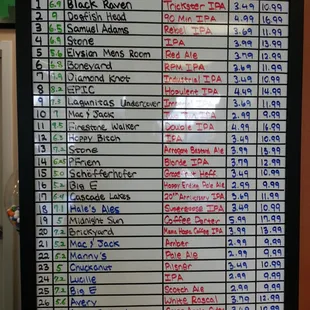 1 6.9 Black Raven Trickster IPA 3.49 10.99
2 9 Dogfish Head 90 Min IPA 4.99 16.99
3 6.5 Samuel Adams Rebel IPA 3.69 11.99
4 6.9 Stone IPA 3.99 13.99
5 5.6 Elysian Mens Room Red Ale 3.79 12.99
6 6.8 Boneyard RPM IPA 3.69 11.99
7 7.9 Diamond Knot Industrial IPA 3.49 10.99
8 8.2 EPIC Hopulent IPA 4.49 14.99
9 Lagunitas Undercover 3.69 11.99
10 Mac & Jack IPA 2.99 9.99
11 9.5 Firestone Walker Double IPA 4.99 16.99
12 6.3 Hoppy Bitch IPA 3.49 10.99
13 7.2 Stone Arrogant Bastard Ale 3.99 13.99
14 Pfriem Blonde IPA 3.79 12.99
15 5.0 Schofferhofer Heff 3.49 10.99
16 5.2 Big E Hoppy Ending Pale Ale 2.99 9.99
17 6.4 Cascade Lakes 20th Anniversary IPA 3.69 11.99
18 7.1 Hale's Ales Supergoose IPA 3.49 10.99
19 5 Midnight Sun Coffee Porter 5.99 17.99
20 7.2 Brickyard IPA 3.99 13.99
21 5.2 Mac & Jack Amber 2.99 9.99
22 5.2 Manny's Pale Ale 2.99 9.99
23 5 Chuckanut Pilsner 3.49 10.99
24 Lucille IPA 2.99 9.99
25 7.2 Big E Scotch Ale 2.99 9.99
26 5.6 Avery White Rascal 3.79 12.99